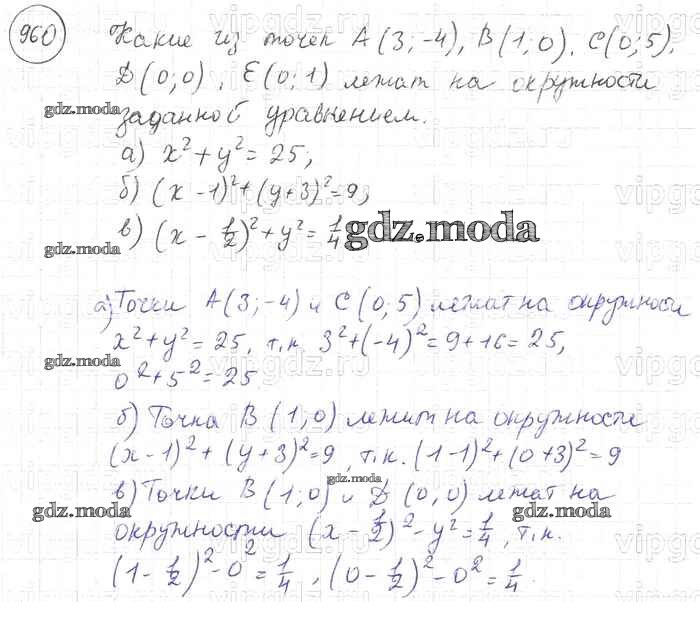 960 Какие из точек A(3;-4), B(1;0), C(0;5),
D(0;0), E(0;1) лежат на окружности
заданной уравнением.
а) x²+y²=25;
б) (x-1)²+(y+3)²=9;
в) (x-1/2)²+y²=1/4
а) Точки A(3;-4) и C(0;5) лежат на окружности
x²+y²=25, т.к. 3²+(-4)²=9+16=25,
0²+5²=25
б) Точка B(1;0) лежит на окружности
(x-1)²+(y+3)²=9, т.к. (1-1)²+(0+3)²=9
в) Точки B(1;0) и D(0,0) лежат на
окружности (x-1/2)²-y²=1/4, т.к.
(1-1/2)²-0²=1/4, (0-1/2)²-0²=1/4.
gdz.moda
gdz.moda
gdz.moda
gdz.moda
gdz.moda
gdz.moda
gdz.moda
gdz.moda
vipgdz